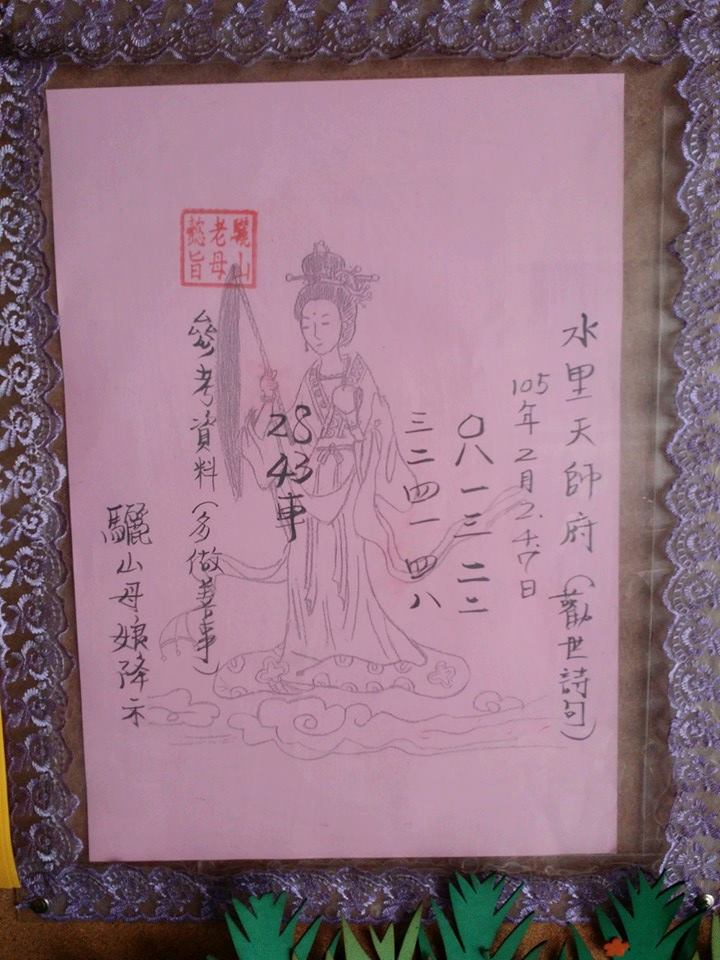 水里天師府(勸世詩句)
105年2月2.4.7日
〇八一三二二
三二四一四八
28 43車
參考資料(多做善事)
驪山母娘降示
驪山
老母
懿旨